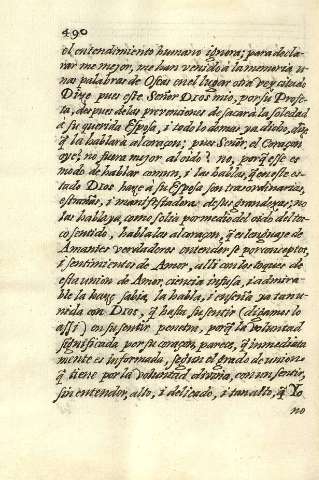 490
el entendimiento humano ignora; para decla-
rarme mejor, me han venido à la memoria u-
nas palabras de Oseas en el lugar otra vez aludido
Dize pues este Señor Dios mio, por su Profe-
ta, despues de las prevenciones de sacar à la soledad
à su querida Esposa, i todo lo demas ya dicho, dize
q̃ la hablarà al coraçon; pues Señor, el Coraçon
oye? no fuera mejor al oido? no, porq̃ esse es
modo de hablar comun, i las hablas, q̃ en este es-
tado Dios haze à su Esposa son trasordinarias,
estrañas, i manifestadoras de sus grandezas; no
las habla ya, como solia por medio del oido del tos-
co sentido, habla los al coraçon, q̃ es lenguaje de
Amantes verdaderos entenderse por conceptos,
i sentimientos de Amor, alli con los toques de
esta union de Amor, ciencia infusa, i admira-
ble la haze sabia, la habla, i enseña ya tan u-
nida con Dios, q̃ hasta su sentir (digamoslo
assi) en su sentir penetra, porq̃ la voluntad
significada por su coraçon, parece, q̃ inmediata
mente es informada, segun el grado de union
q̃ tiene por la voluntad divina, con un sentir,
sin entender, alto, i delicado, i tan alto, q̃ Yo
no